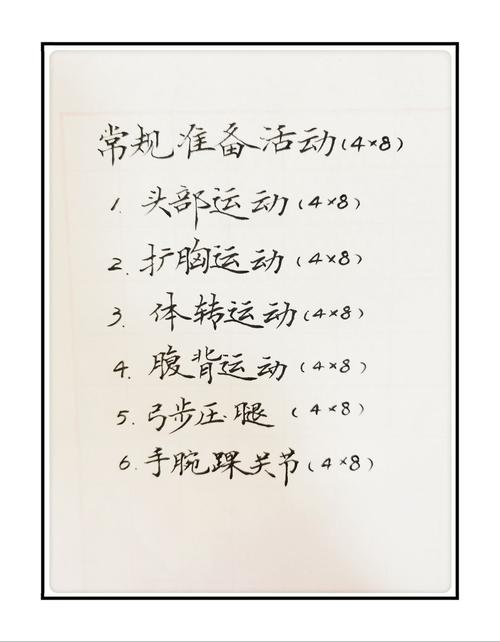 常规准备活动(4×8)
1. 头部运动(4×8)
2. 扩胸运动(4×8)
3. 体转运动(4×8)
4. 腹背运动(4×8)
5. 弓步压腿(4×8)
6. 手腕踝关节(4×8)